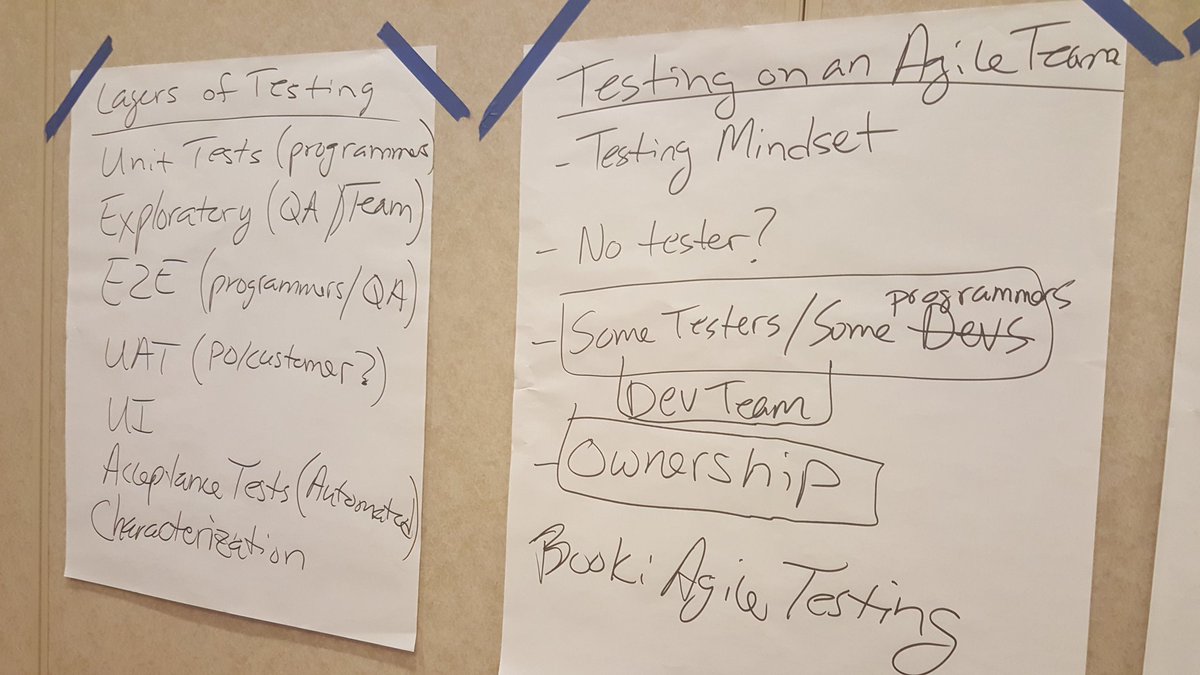 Layers of Testing
Unit Tests (programmers)
Exploratory (QA/Team)
E2E (programmers/QA)
UAT (PO/customer?)
UI
Acceptance Tests (Automated)
Characterization
Testing on an Agile Team
- Testing Mindset
- No tester?
programmers
- Some Testers/Some Devs
Dev Team
- Ownership
Book: Agile Testing